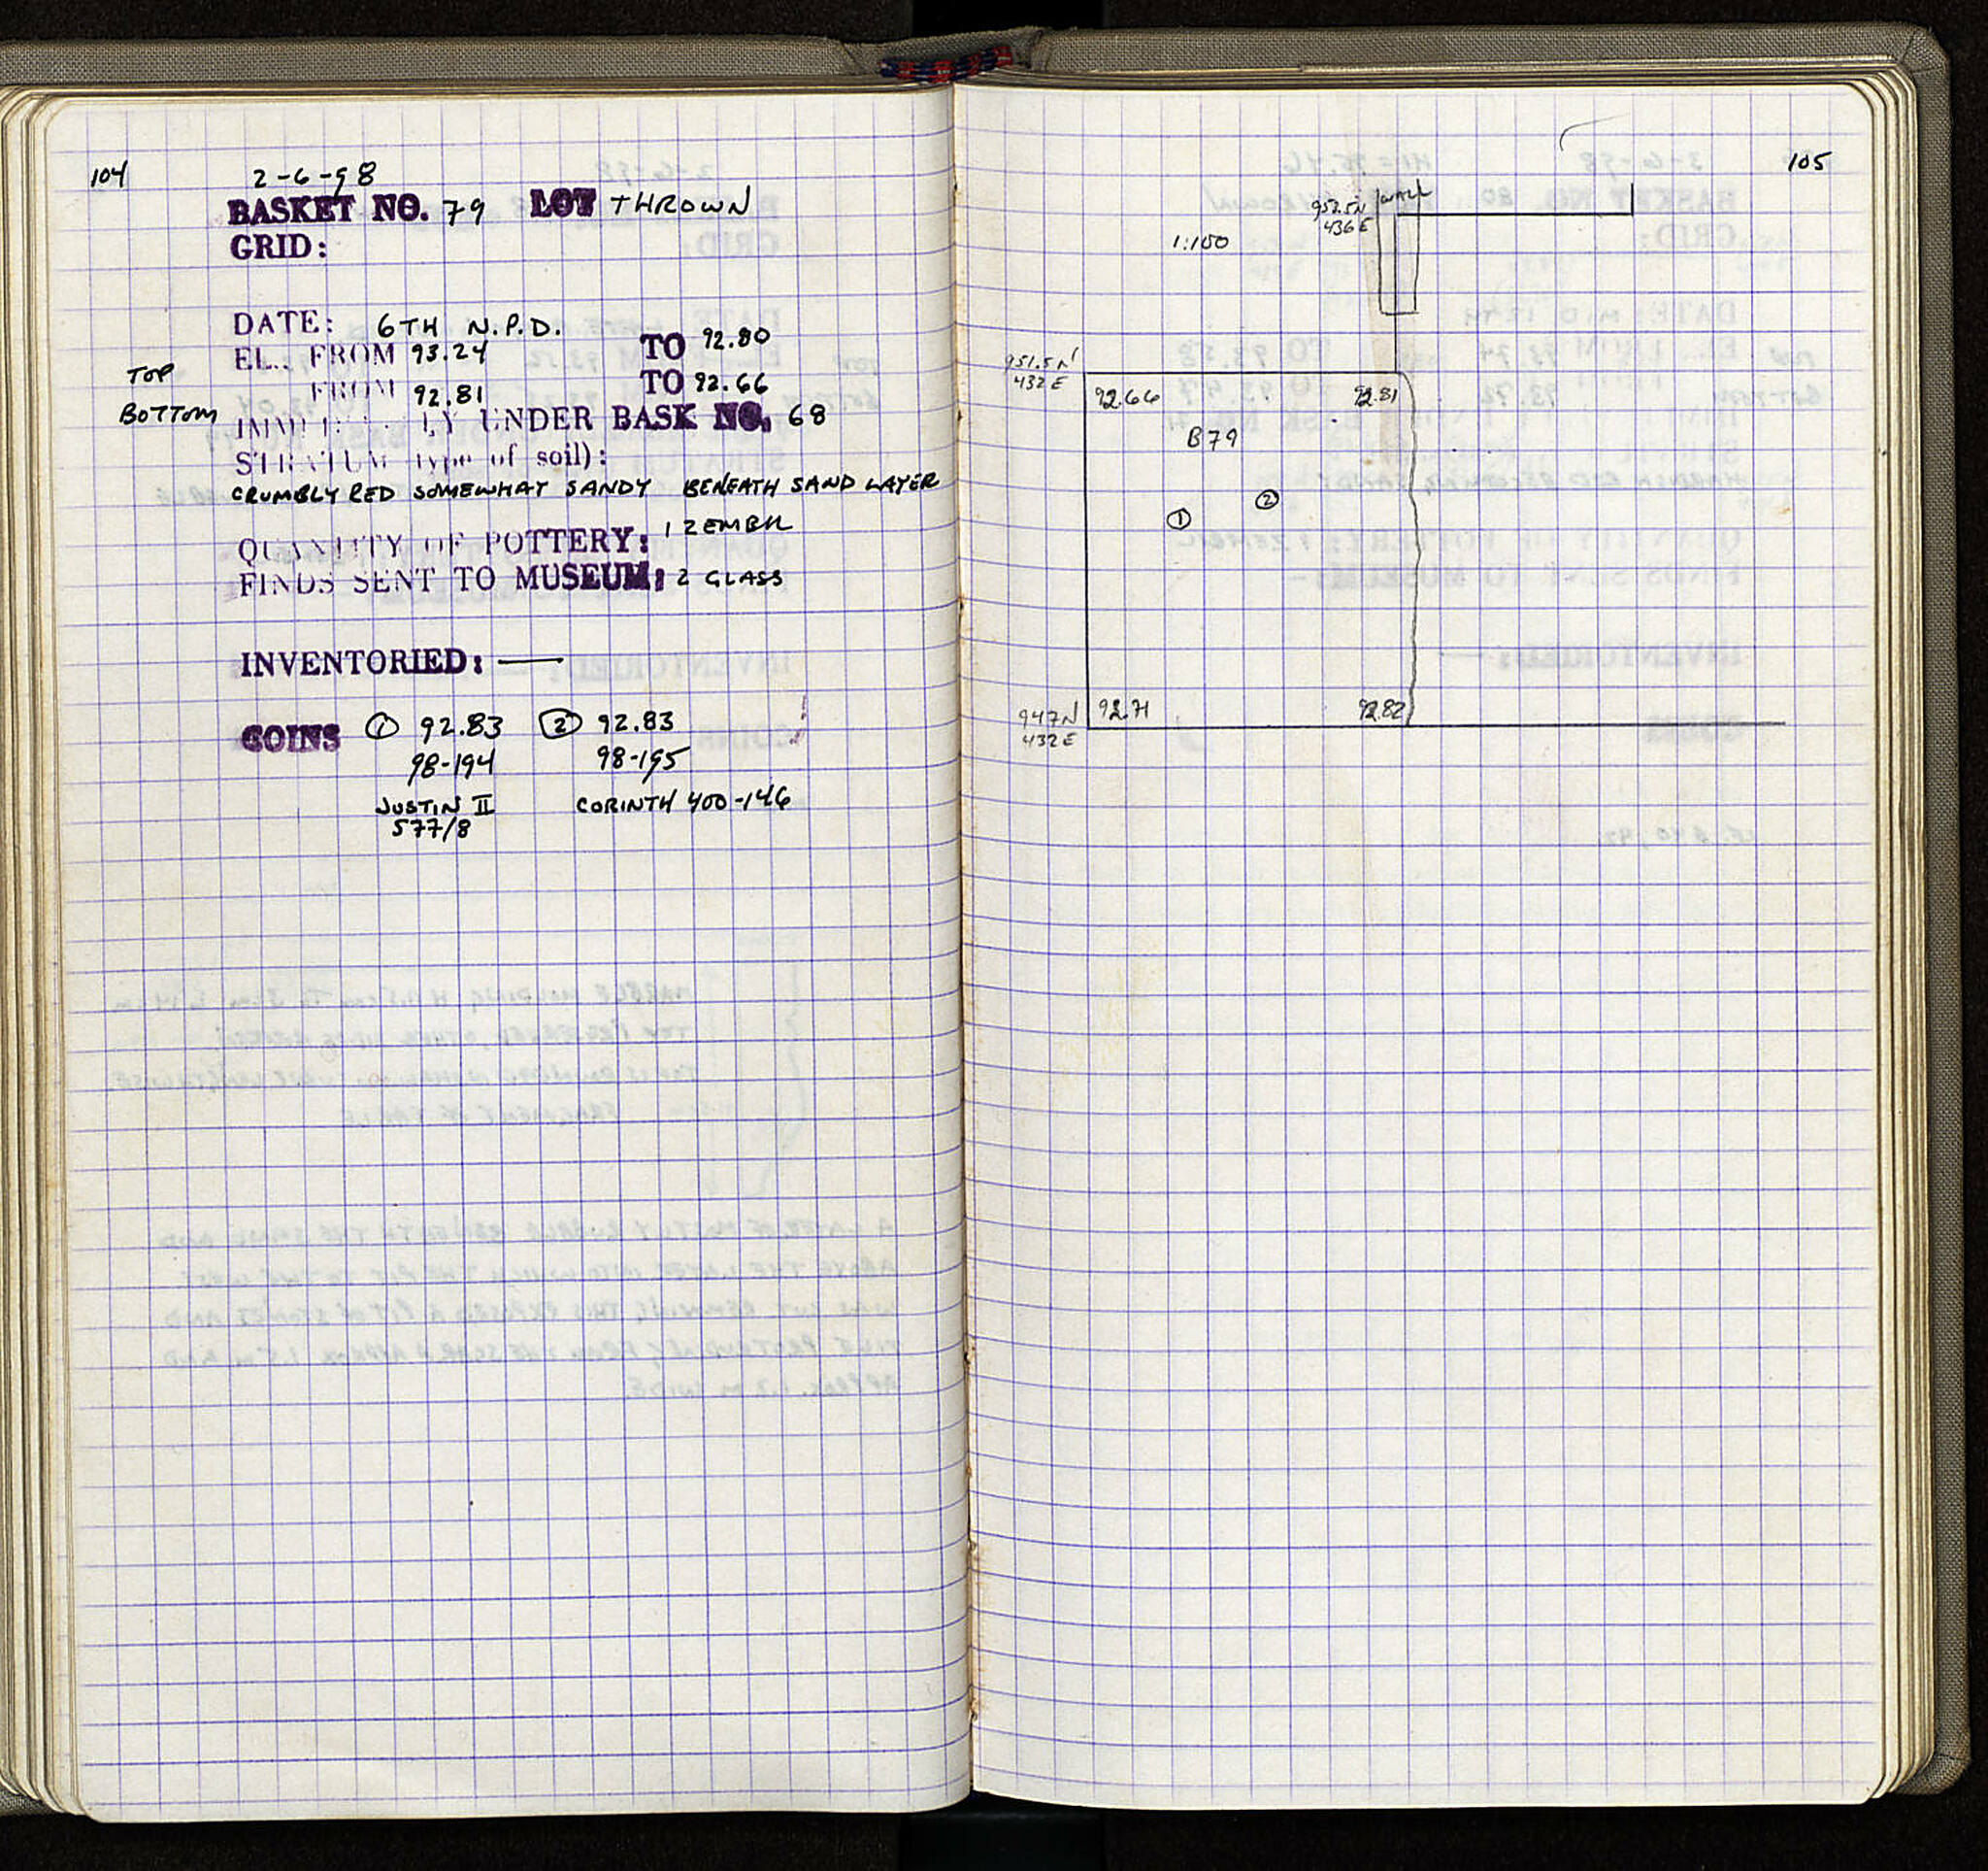 104
2-6-98
BASKET NO. 79 LOT THROWN
GRID:
DATE: 6TH N.P.D.
TOP EL. FROM 93.24 TO 92.80
BOTTOM FROM 92.81 TO 92.66
UNDER BASK NO. 68
STRATUM type of soil):
CRUMBLY RED SOMEWHAT SANDY BENEATH SAND LAYER
QUANTITY OF POTTERY: 1 ZEMBIL
FINDS SENT TO MUSEUM: 2 GLASS
INVENTORIED: —
COINS ① 92.83 ② 92.83
98-194 98-195
JUSTIN II CORINTH 400-146
577/8
105
WALL
952.5N
436E
1:100
951.5N
432E
92.66 92.81
B79
②
①
92.71 92.82
947N
432E